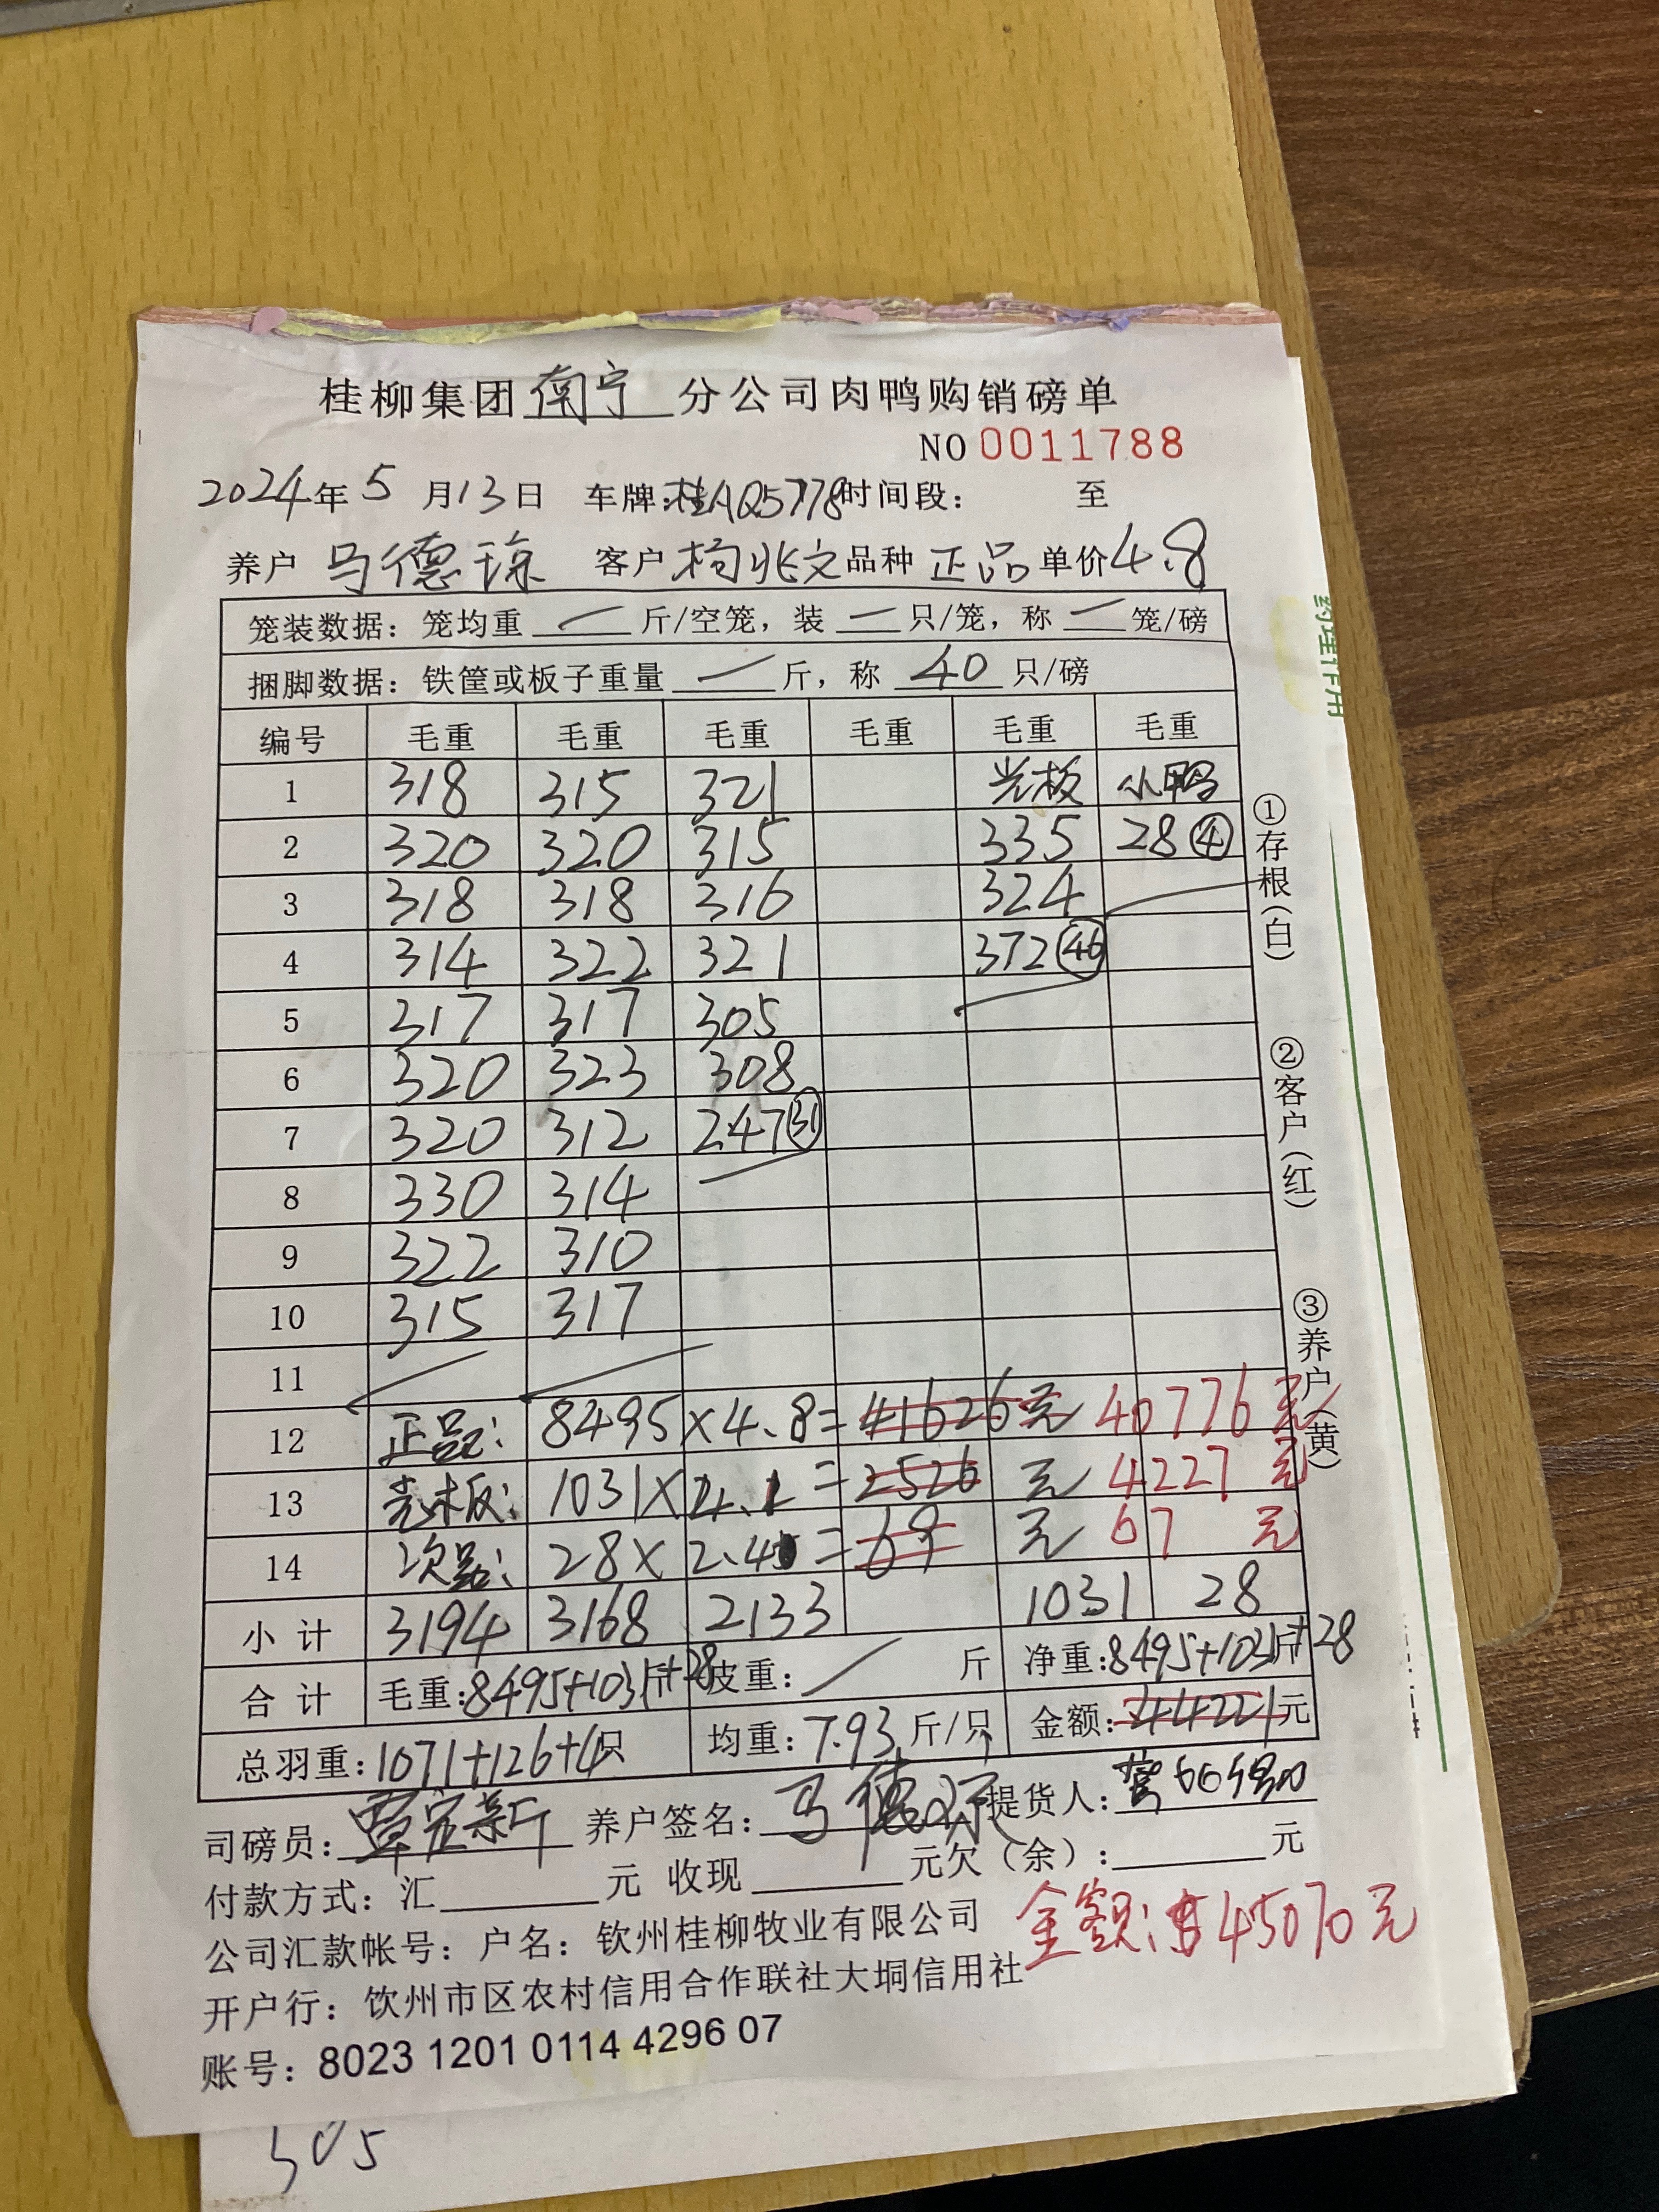 桂柳集团南宁分公司肉鸭购销磅单
NO 0011788
2024年5月13日 车牌:桂AQ5778 时间段: 至
养户 马德琼 客户 杨兆文 品种 正品 单价 4.8
笼装数据: 笼均重 — 斤/空笼, 装 — 只/笼, 称 — 笼/磅
捆脚数据: 铁筐或板子重量 — 斤, 称 40 只/磅
编号 毛重 毛重 毛重 毛重 毛重 毛重
1 318 315 321 光板 小鸭
2 320 320 315 335 28 ④
3 318 318 316 324
4 314 322 321 372 ㊻
5 317 317 305
6 320 323 308
7 320 312 247 ㉛
8 330 314
9 322 310
10 315 317
11
12 正品: 8495×4.8=41626元 40776元
13 光板: 1031×4.1=2526元 4227元
14 次品: 28×2.4=69元 67元
小计 3194 3168 2133 1031 28
合计 毛重:8495+1031斤+28 皮重: 斤 净重:8495+1031斤+28
总羽重:1071+126+4只 均重:7.93斤/只 金额:44221元
司磅员: 覃定新 养户签名: 马德琼 提货人:
付款方式: 汇 元 收现 元欠(余): 元
金额: 45070元
公司汇款帐号: 户名: 钦州桂柳牧业有限公司
开户行: 钦州市区农村信用合作联社大垌信用社
账号: 8023 1201 0114 4296 07
①存根(白)
②客户(红)
③养户(黄)
305